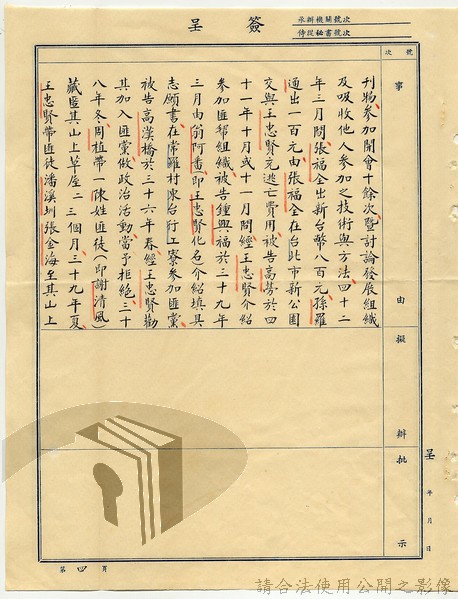 簽呈
承辦機關號次
侍從秘書號次
號次
事由
擬辦
批示
呈
年月日
刊物、參加開會十餘次、暨討論發展組織
及吸收他人參加之技術與方法、四十二
年三月間張福全出新台幣八百元、孫羅
通出一百元、由張福全在台北市新公園
交與王忠賢充逃亡費用、被告高勞於四
十一年十月或十一月間經王忠賢介紹
參加匪幫組織、被告鍾興福於三十九年
三月由翁阿番即王忠賢化名介紹填具
志願書在常羅村陳台行工寮參加匪黨、
被告高漢橋於三十六年春經王忠賢勸
其加入匪黨做政治活動當予拒絕、三十
八年冬周植帶一陳姓匪徒(即謝清風)
藏匿其山上草屋二三個月、三十九年夏、
王忠賢帶匪徒潘溪圳張金海至其山上
第四頁
請合法使用公開之影像